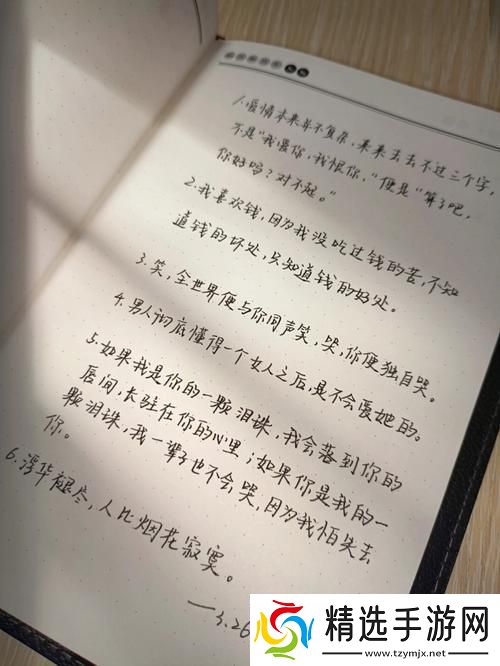 1.爱情本来并不复杂，来来去去不过三个字，
不是“我爱你，我恨你，”便是“算了吧，
你好吗？对不起。”
2.我喜欢钱，因为我没吃过钱的苦，不知
道钱的坏处，只知道钱的好处。
3.笑，全世界便与你同声笑，哭，你便独自哭。
4.男人彻底懂得一个女人之后，是不会爱她的。
5.如果我是你的一颗泪珠，我会落到你的
唇间，长驻在你的心里；如果你是我的一
颗泪珠，我一辈子也不会哭，因为我怕失去
你。
6.浮华褪尽，人比烟花寂寞。
——3.26
精选手游网
www.tzymjx.net